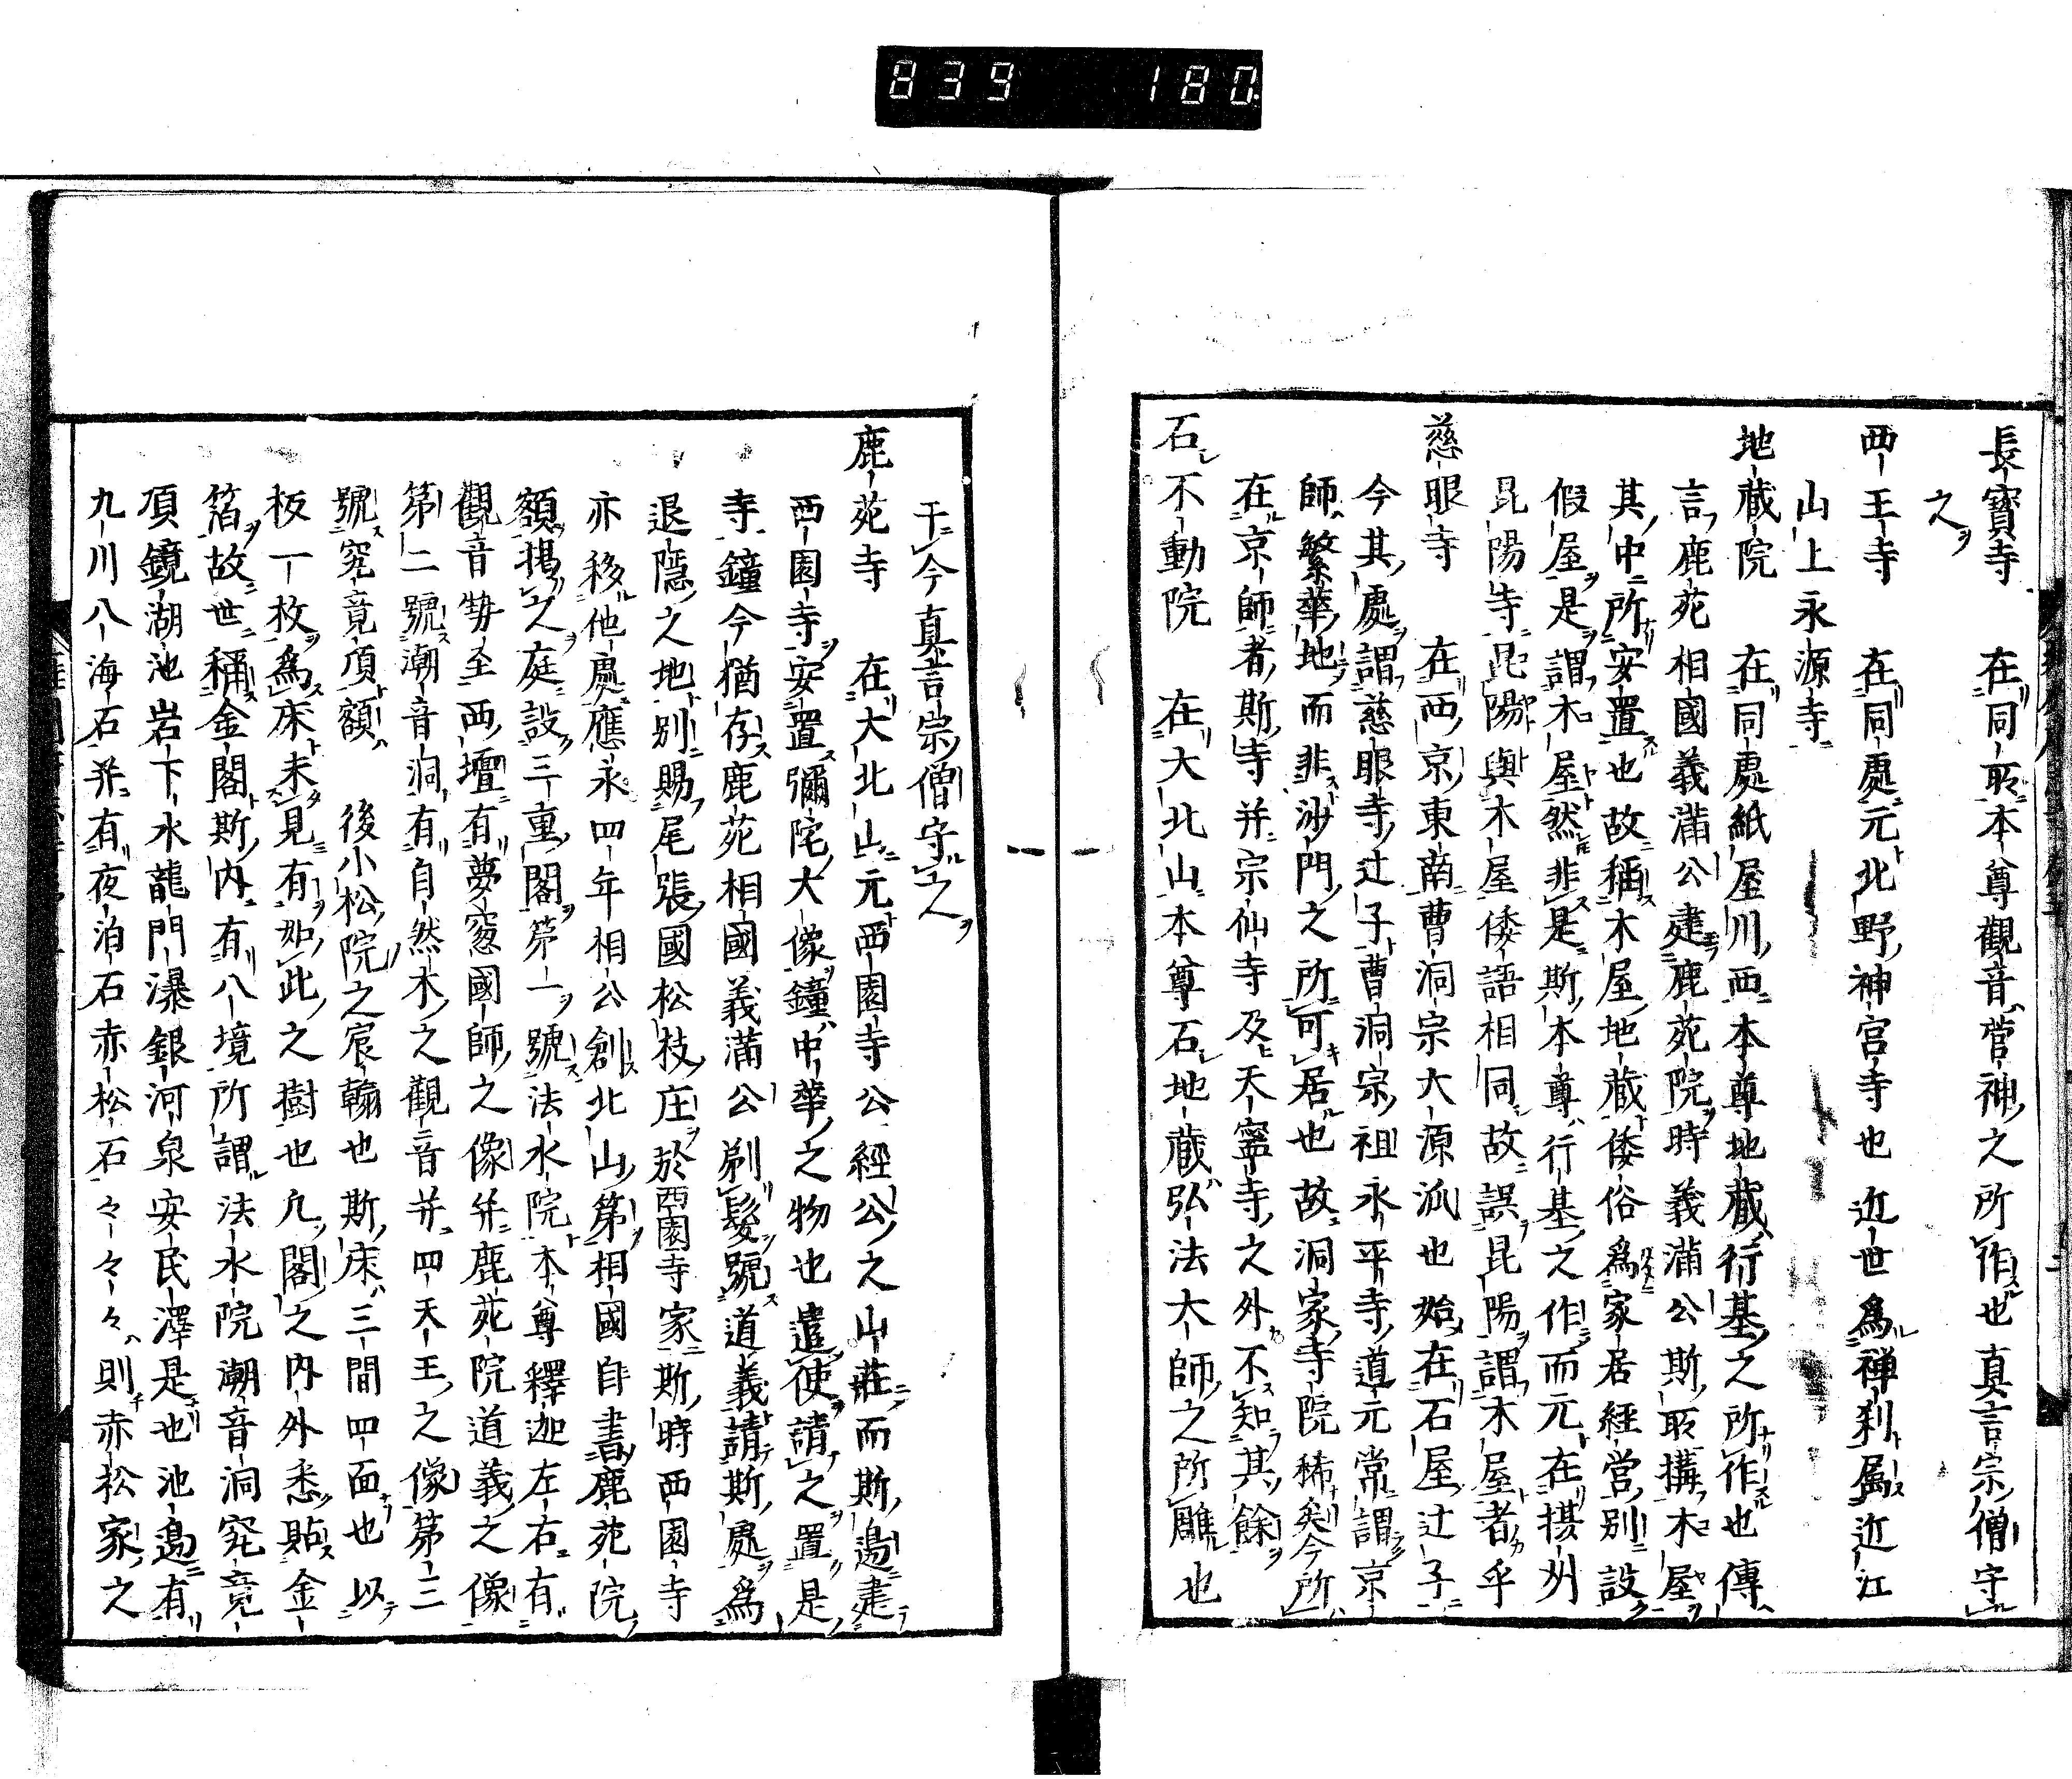 839 180
長寶寺 在同所本尊觀音菅神之所作也真言宗僧守
之
西王寺 在同處元北野神宮寺也近世爲禅刹属近江
山上永源寺
地蔵院 在同處紙屋川西本尊地蔵行基之所作也傳
言鹿苑相國義滿公建鹿苑院時義滿公斯所搆木屋
其中所安置也故稱木屋地蔵倭俗爲家居経営別設
假屋是謂木屋然非是斯本尊行基之作而元在摂州
昆陽寺昆陽與木屋倭語相同故誤昆陽謂木屋者乎
慈眼寺 在西京東南曹洞宗大源派也始在石屋辻子
今其處謂慈眼寺辻子曹洞宗祖永平寺道元常謂京
師繁華地而非沙門之所可居也故洞家寺院稀矣今所
在京師者斯寺并宗仙寺及天寧寺之外不知其餘
石不動院 在大北山本尊石地蔵弘法大師之所雕也
于今真言宗僧守之
鹿苑寺 在大北山元西園寺公經公之山莊而斯邉建
西園寺安置彌陀大像鐘中華之物也遣使請之置是
寺鐘今猶存鹿苑相國義滿公剃髮號道義請斯處爲
退隠之地別賜尾張國松枝庄於西園寺家斯時西園寺
亦移他處應永四年相公創北山第相國自書鹿苑院
額掲之庭設三重閣第一號法水院本尊釋迦左右有
觀音勢至西壇有夢窓國師之像并鹿苑院道義之像
第二號潮音洞有自然木之觀音并四天王之像第三
號究竟頂額 後小松院之宸翰也斯床三間四面也以
板一枚爲床未見有如此之樹也凡閣之内外悉貼金
箔故世稱金閣斯内有八境所謂法水院潮音洞究竟
頂鏡湖池岩下水龍門瀑銀河泉安民澤是也池邉有
九川八海石并有夜泊石赤松石々々々則赤松家之